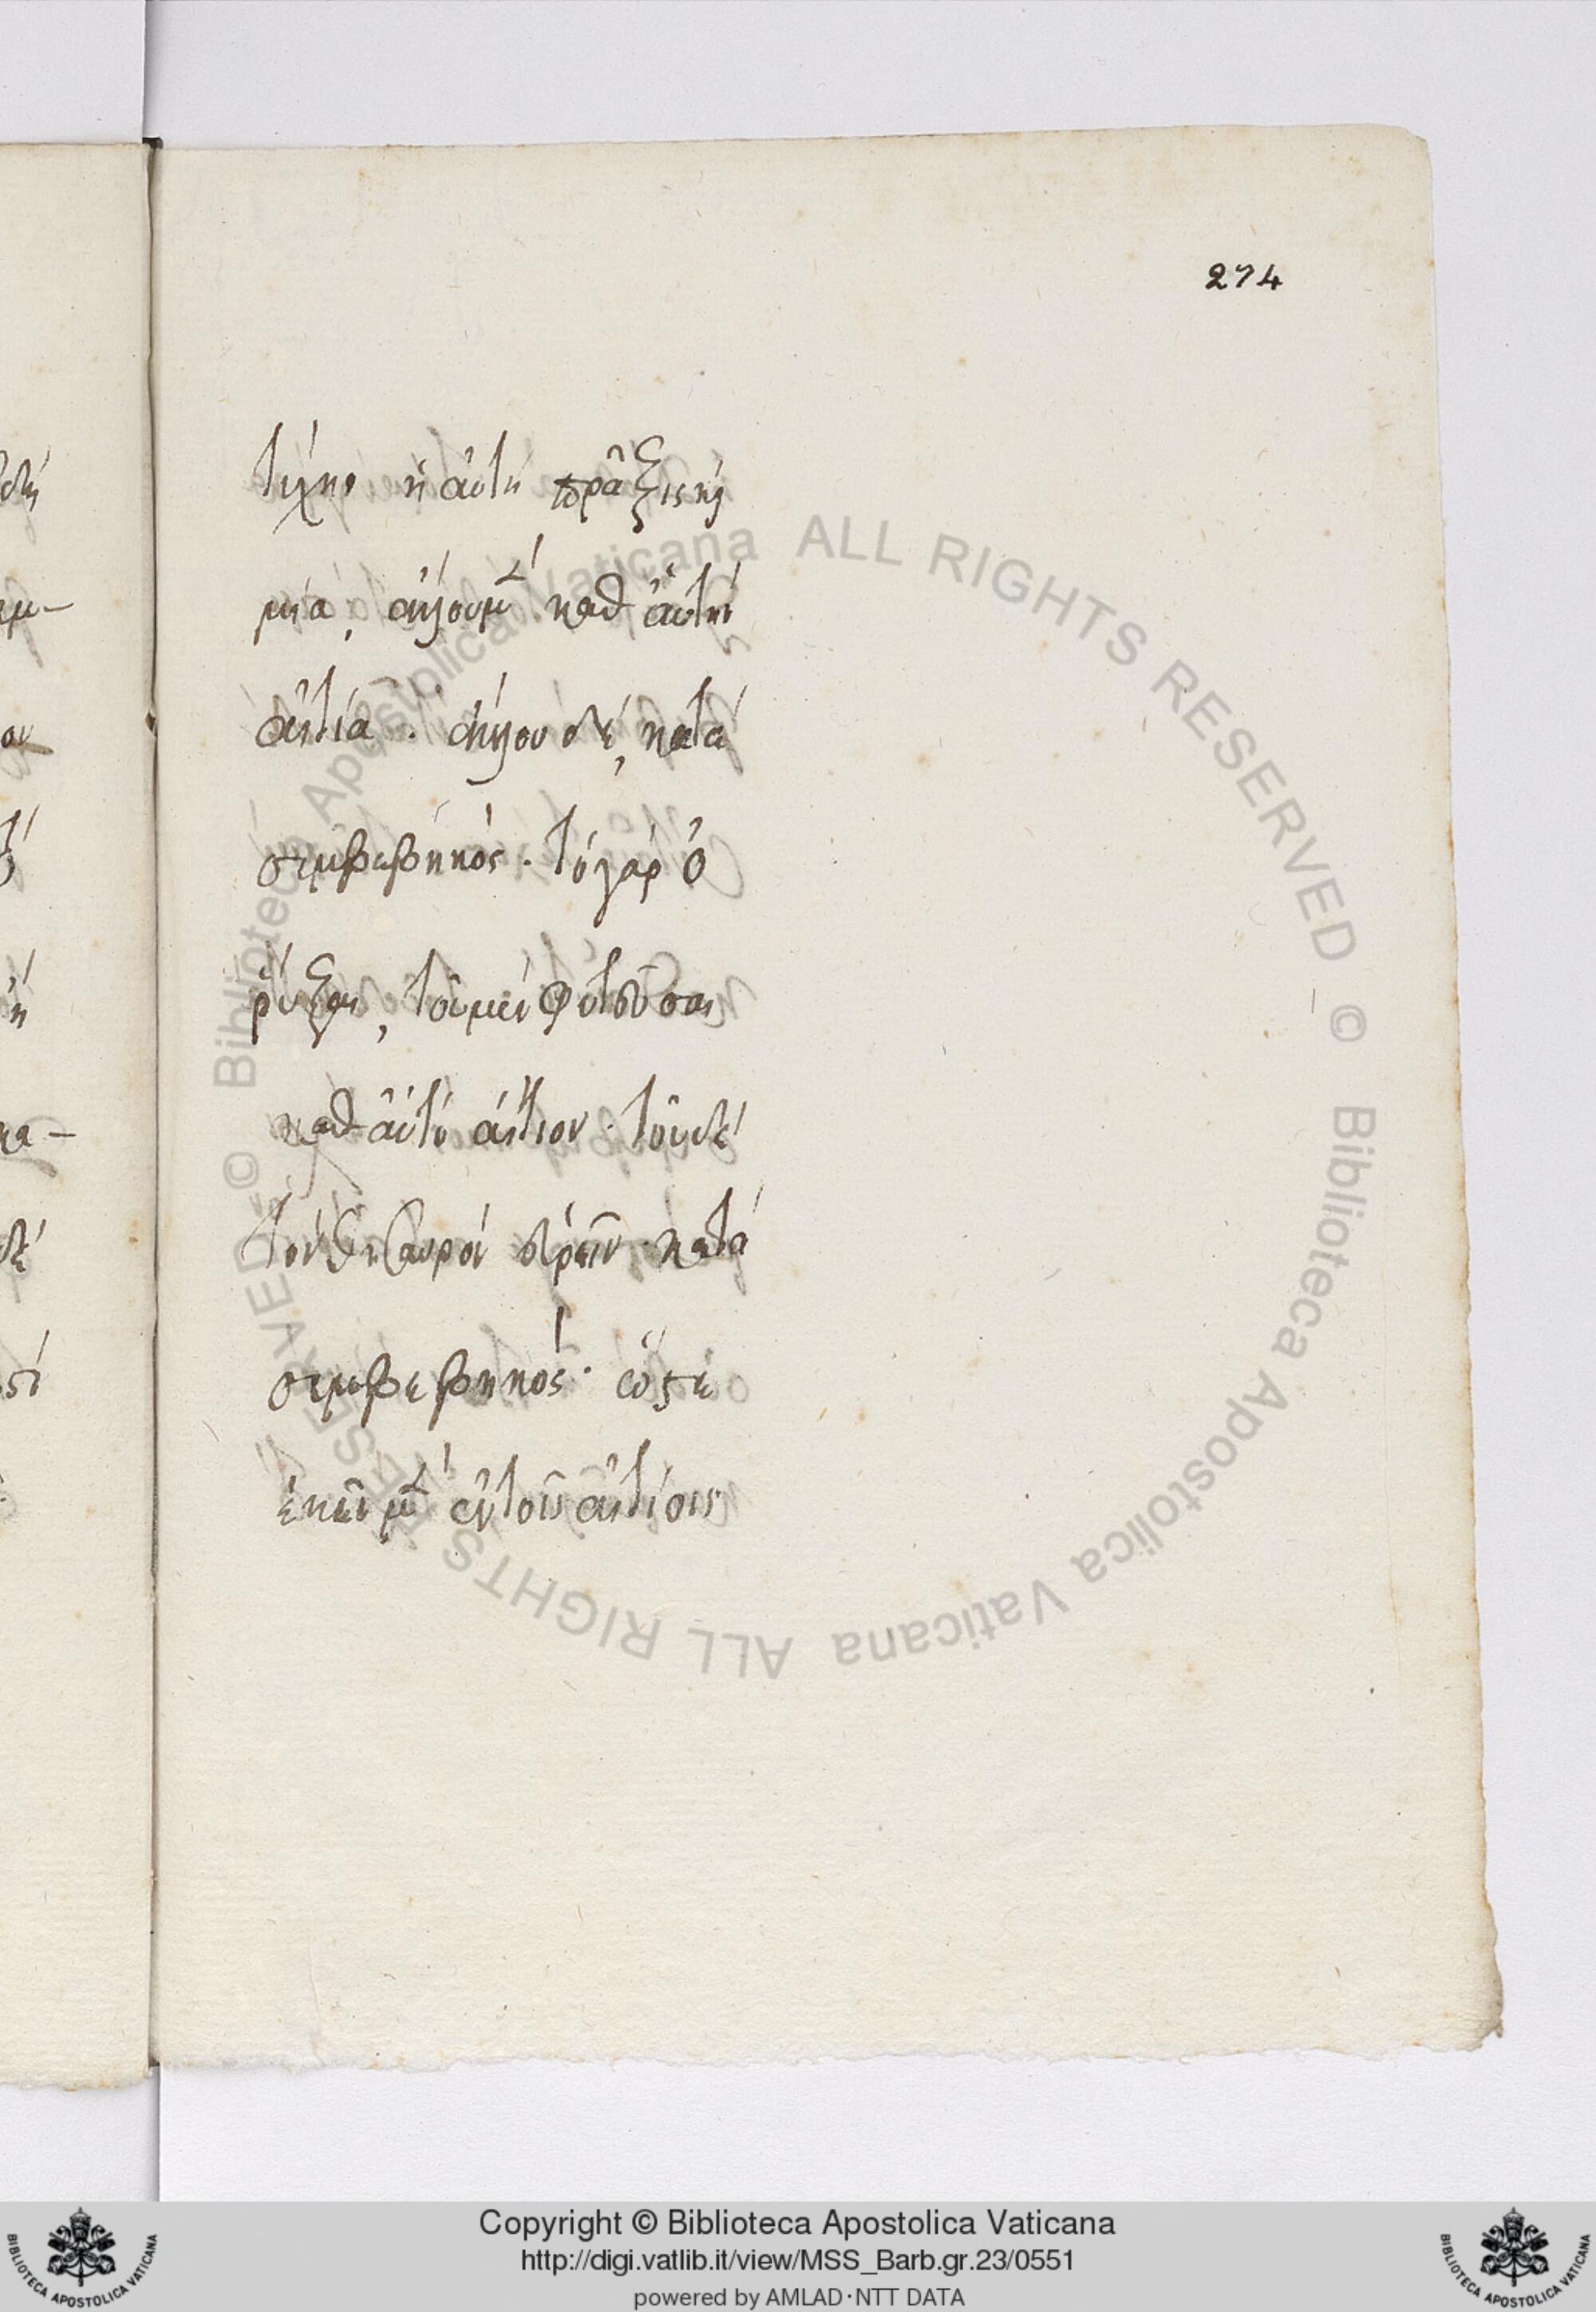 274
τύχην ἡ αὐτὴ πρᾶξις καὶ
μία, ἄλλου μὲν καθ αὑτὴν
αἰτία. ἄλλου δὲ, κατὰ
συμβεβηκός. τὸ γὰρ ὀ
ρύξαι, τοῦ μὲν φυτεῦσαι
καθ αὑτὸ αἴτιον. τοῦ δὲ
τὸν θησαυρὸν εὑρεῖν κατὰ
συμβεβηκός. ὥστε
ἐκεῖ μὲν ἐν τοῖς αἰτίοις
Copyright © Biblioteca Apostolica Vaticana
http://digi.vatlib.it/view/MSS_Barb.gr.23/0551
powered by AMLAD·NTT DATA
© Biblioteca Apostolica Vaticana ALL RIGHTS RESERVED
© Biblioteca Apostolica Vaticana ALL RIGHTS RESERVED
BIBLIOTECA APOSTOLICA VATICANA
BIBLIOTECA APOSTOLICA VATICANA